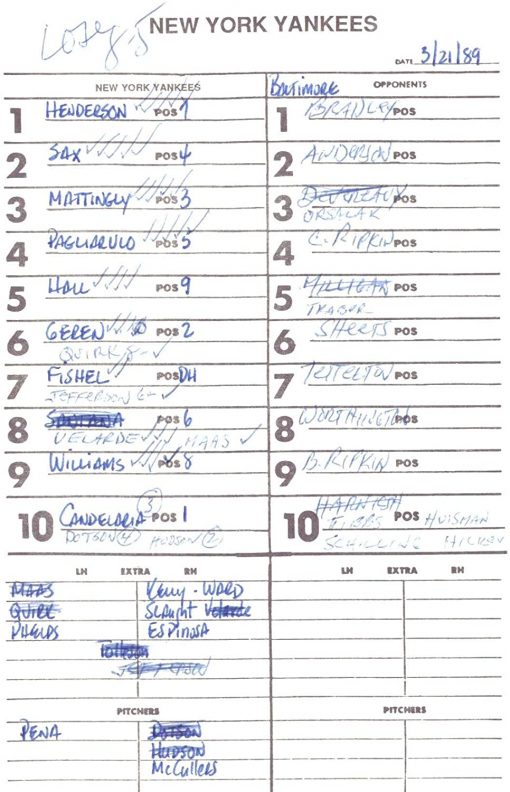 NEW YORK YANKEES
DATE 3/21/89
NEW YORK YANKEES
1 HENDERSON POS 7
2 SAX POS 4
3 MATTINGLY POS 3
4 PAGLIARULO POS 5
5 HALL POS 9
6 GEREN POS 2
QUIRK
7 FISHEL POS DH
JEFFERSON
8 SANTANA POS 6
VELARDE MAAS
9 WILLIAMS POS 8
10 CANDELARIA 3 POS 1
DOTSON 4 HUDSON 2
BALTIMORE OPPONENTS
1 BRADLEY POS
2 ANDERSON POS
3 DEVEREAUX POS
ORSULAK
4 C. RIPKIN POS
5 MILLIGAN POS
TRABER
6 SHEETS POS
7 TETTELTON POS
8 WORTHINGTON POS
9 B. RIPKIN POS
10 HARNISH POS
TIBBS HUISMAN
SCHILLING HICKEY
LH EXTRA RH
MAAS KELLY - WARD
QUIRK SLAUGHT VELARDE
PHELPS ESPINOSA
TOLLESON
JEFFERSON
PITCHERS
PENA DOTSON
HUDSON
MCCULLERS
LH EXTRA RH
PITCHERS